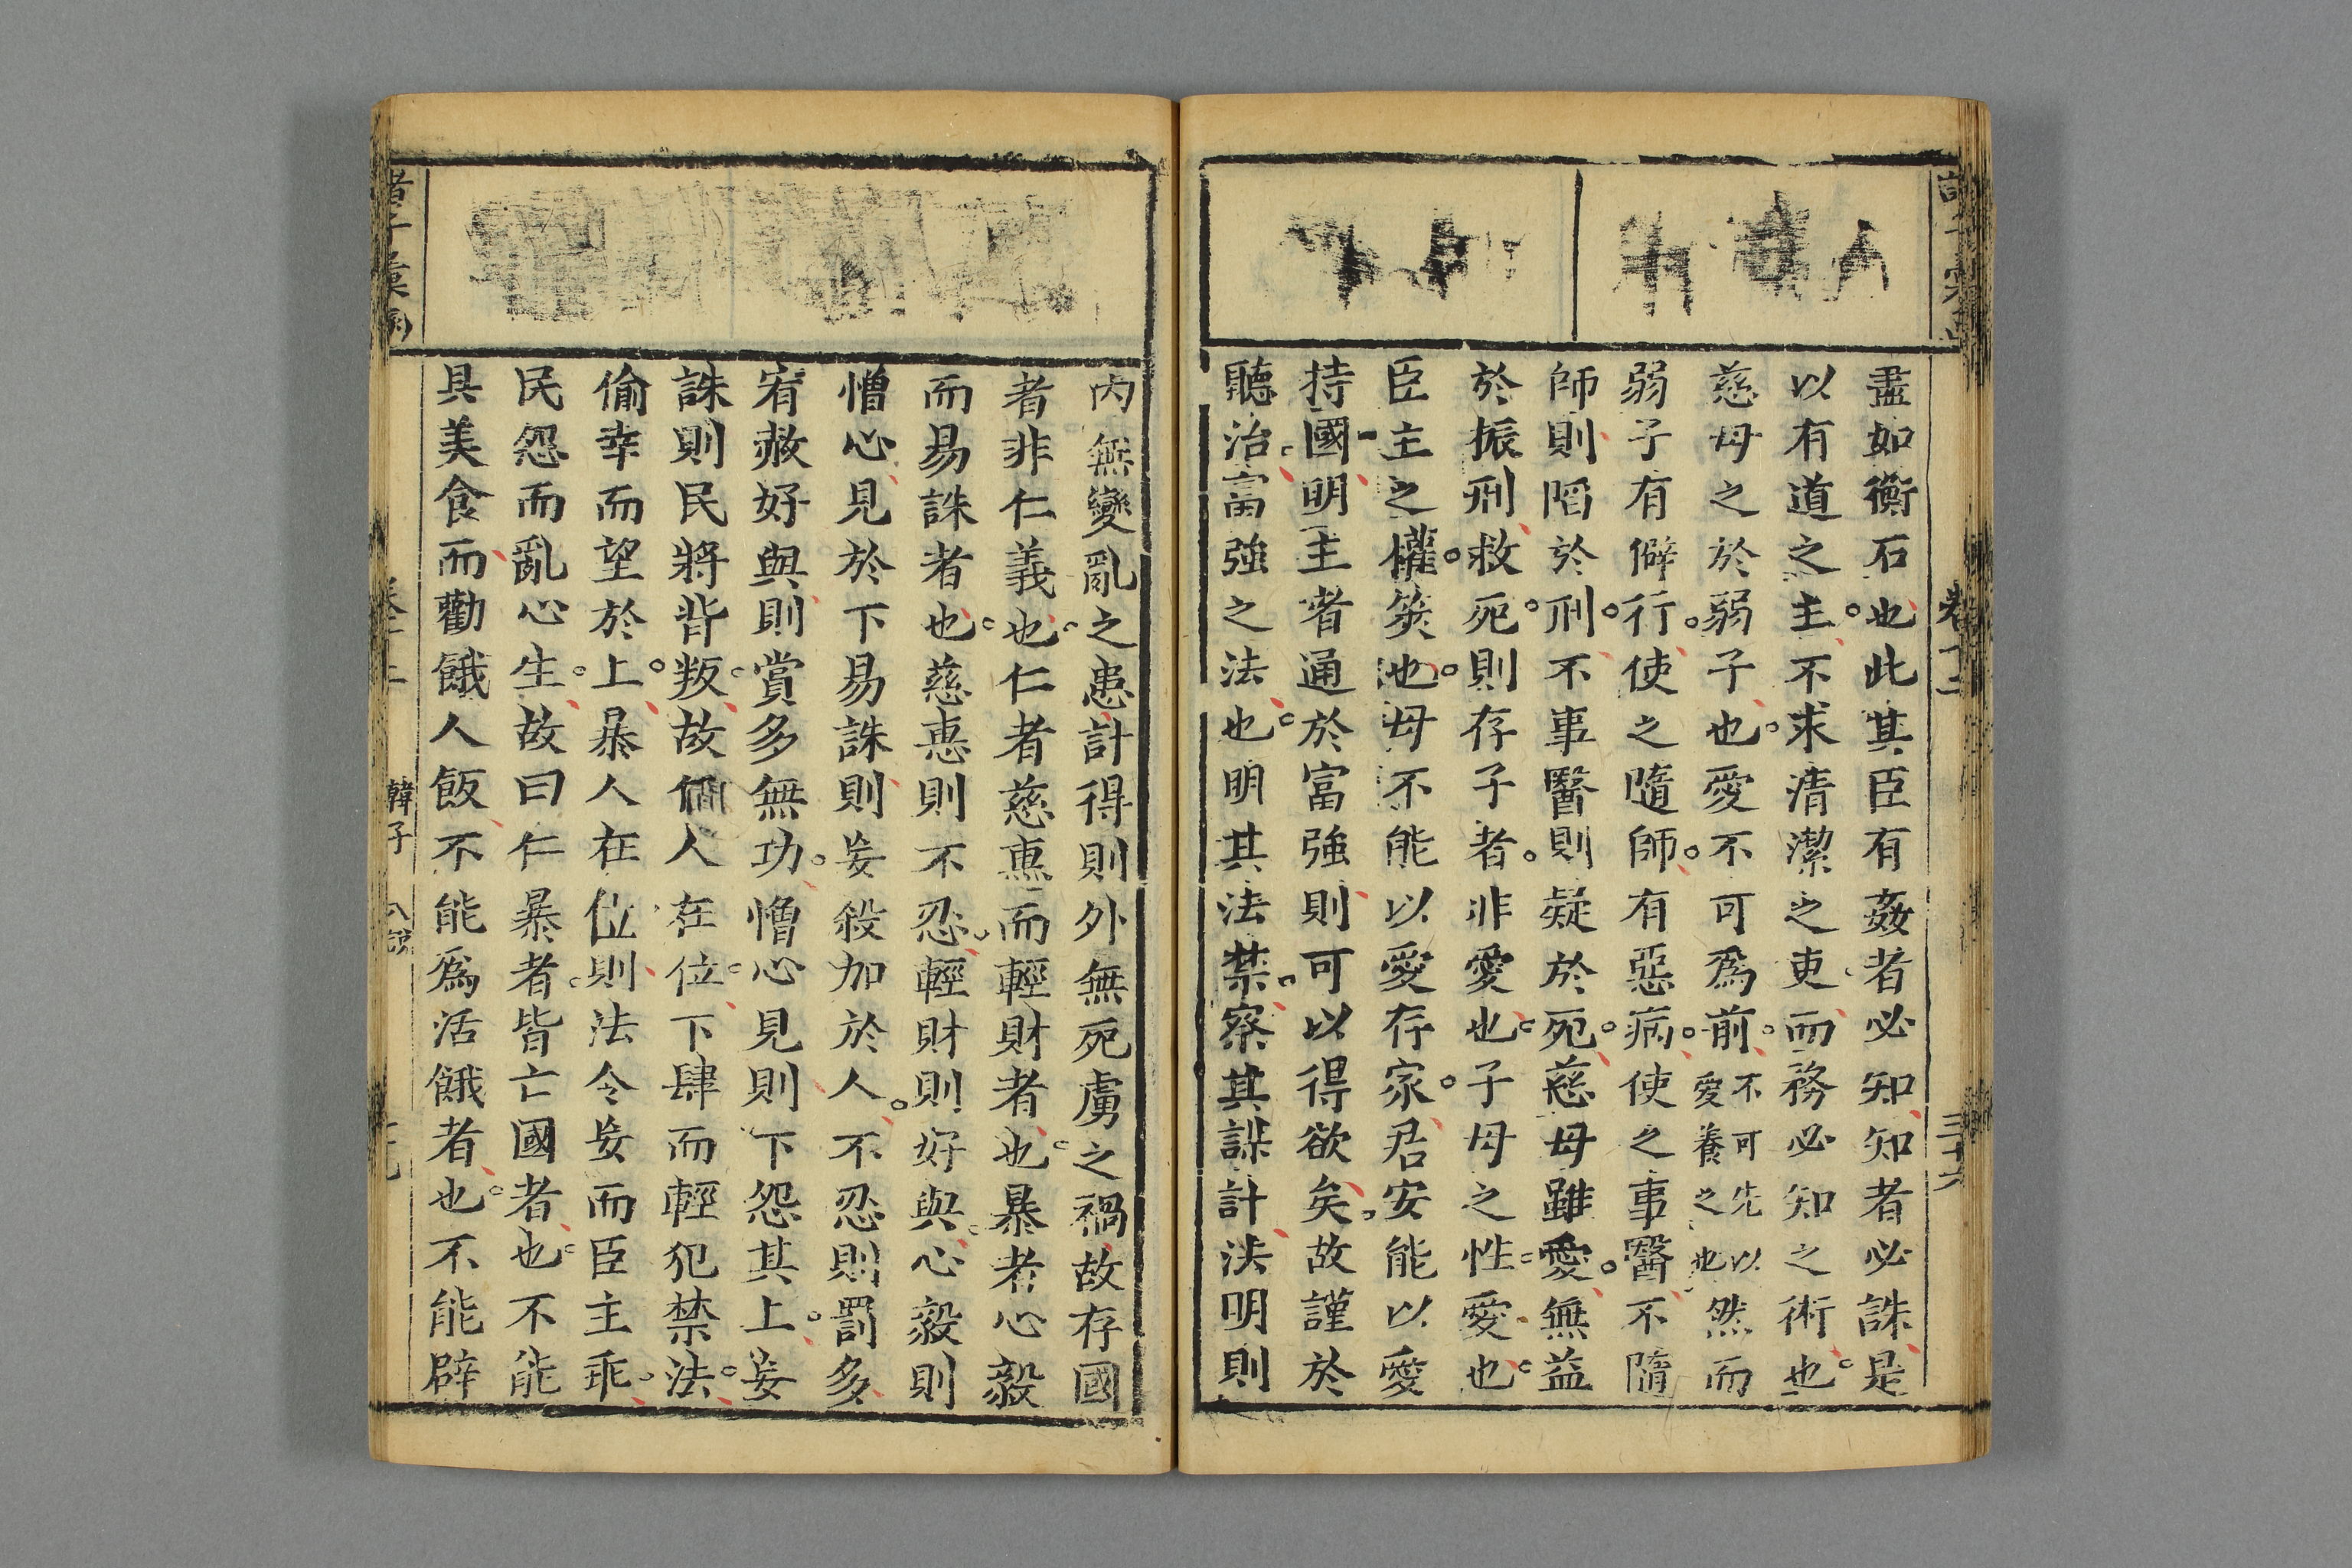 盡如衡石也此其臣有姦者必知知者必誅是
以有道之主不求清潔之吏而務必知之術也
慈母之於弱子也愛不可爲前不可先以愛養之也然而
弱子有僻行使之隨師有惡病使之事醫不隨
師則陷於刑不事醫則疑於死慈母雖愛無益
於振刑救死則存子者非愛也子母之性愛也
臣主之權筴也母不能以愛存家君安能以愛
持國明主者通於富強則可以得欲矣故謹於
聽治富強之法也明其法禁察其謀計法明則
內無變亂之患計得則外無死虜之禍故存國
者非仁義也仁者慈惠而輕財者也暴者心毅
而易誅者也慈惠則不忍輕財則好與心毅則
憎心見於下易誅則妄殺加於人不忍則罰多
宥赦好與則賞多無功憎心見則下怨其上妄
誅則民將背叛故仁人在位下肆而輕犯禁法
偷幸而望於上暴人在位則法令妄而臣主乖
民怨而亂心生故曰仁暴者皆亡國者也不能
具美食而勸餓人飯不能爲活餓者也不能辟
韓子 八說